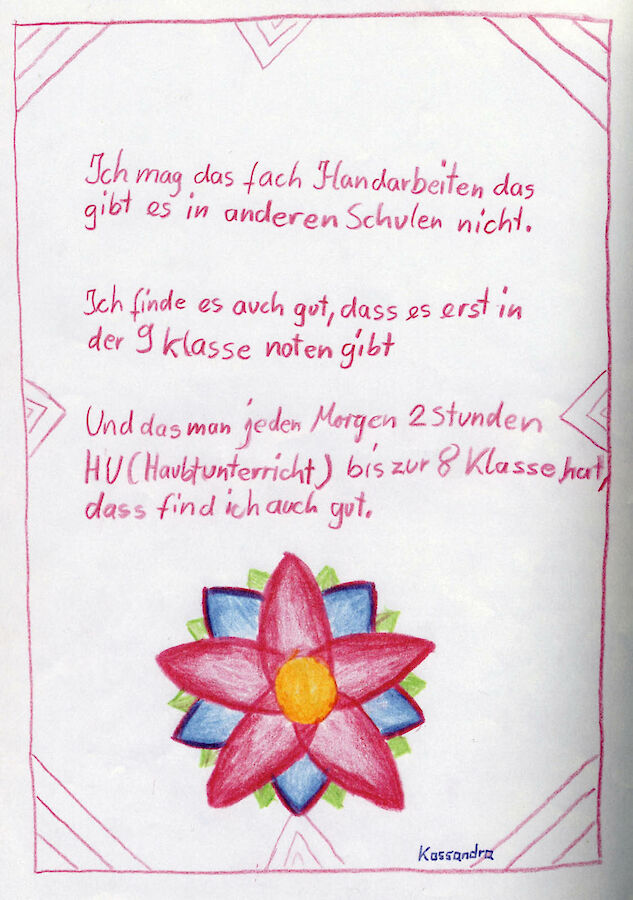 Ich mag das fach Handarbeiten das
gibt es in anderen Schulen nicht.
Ich finde es auch gut, dass es erst in
der 9 klasse noten gibt
Und das man jeden Morgen 2 Stunden
HU (Haubtunterricht) bis zur 8 Klasse hat,
dass find ich auch gut.
Kassandra